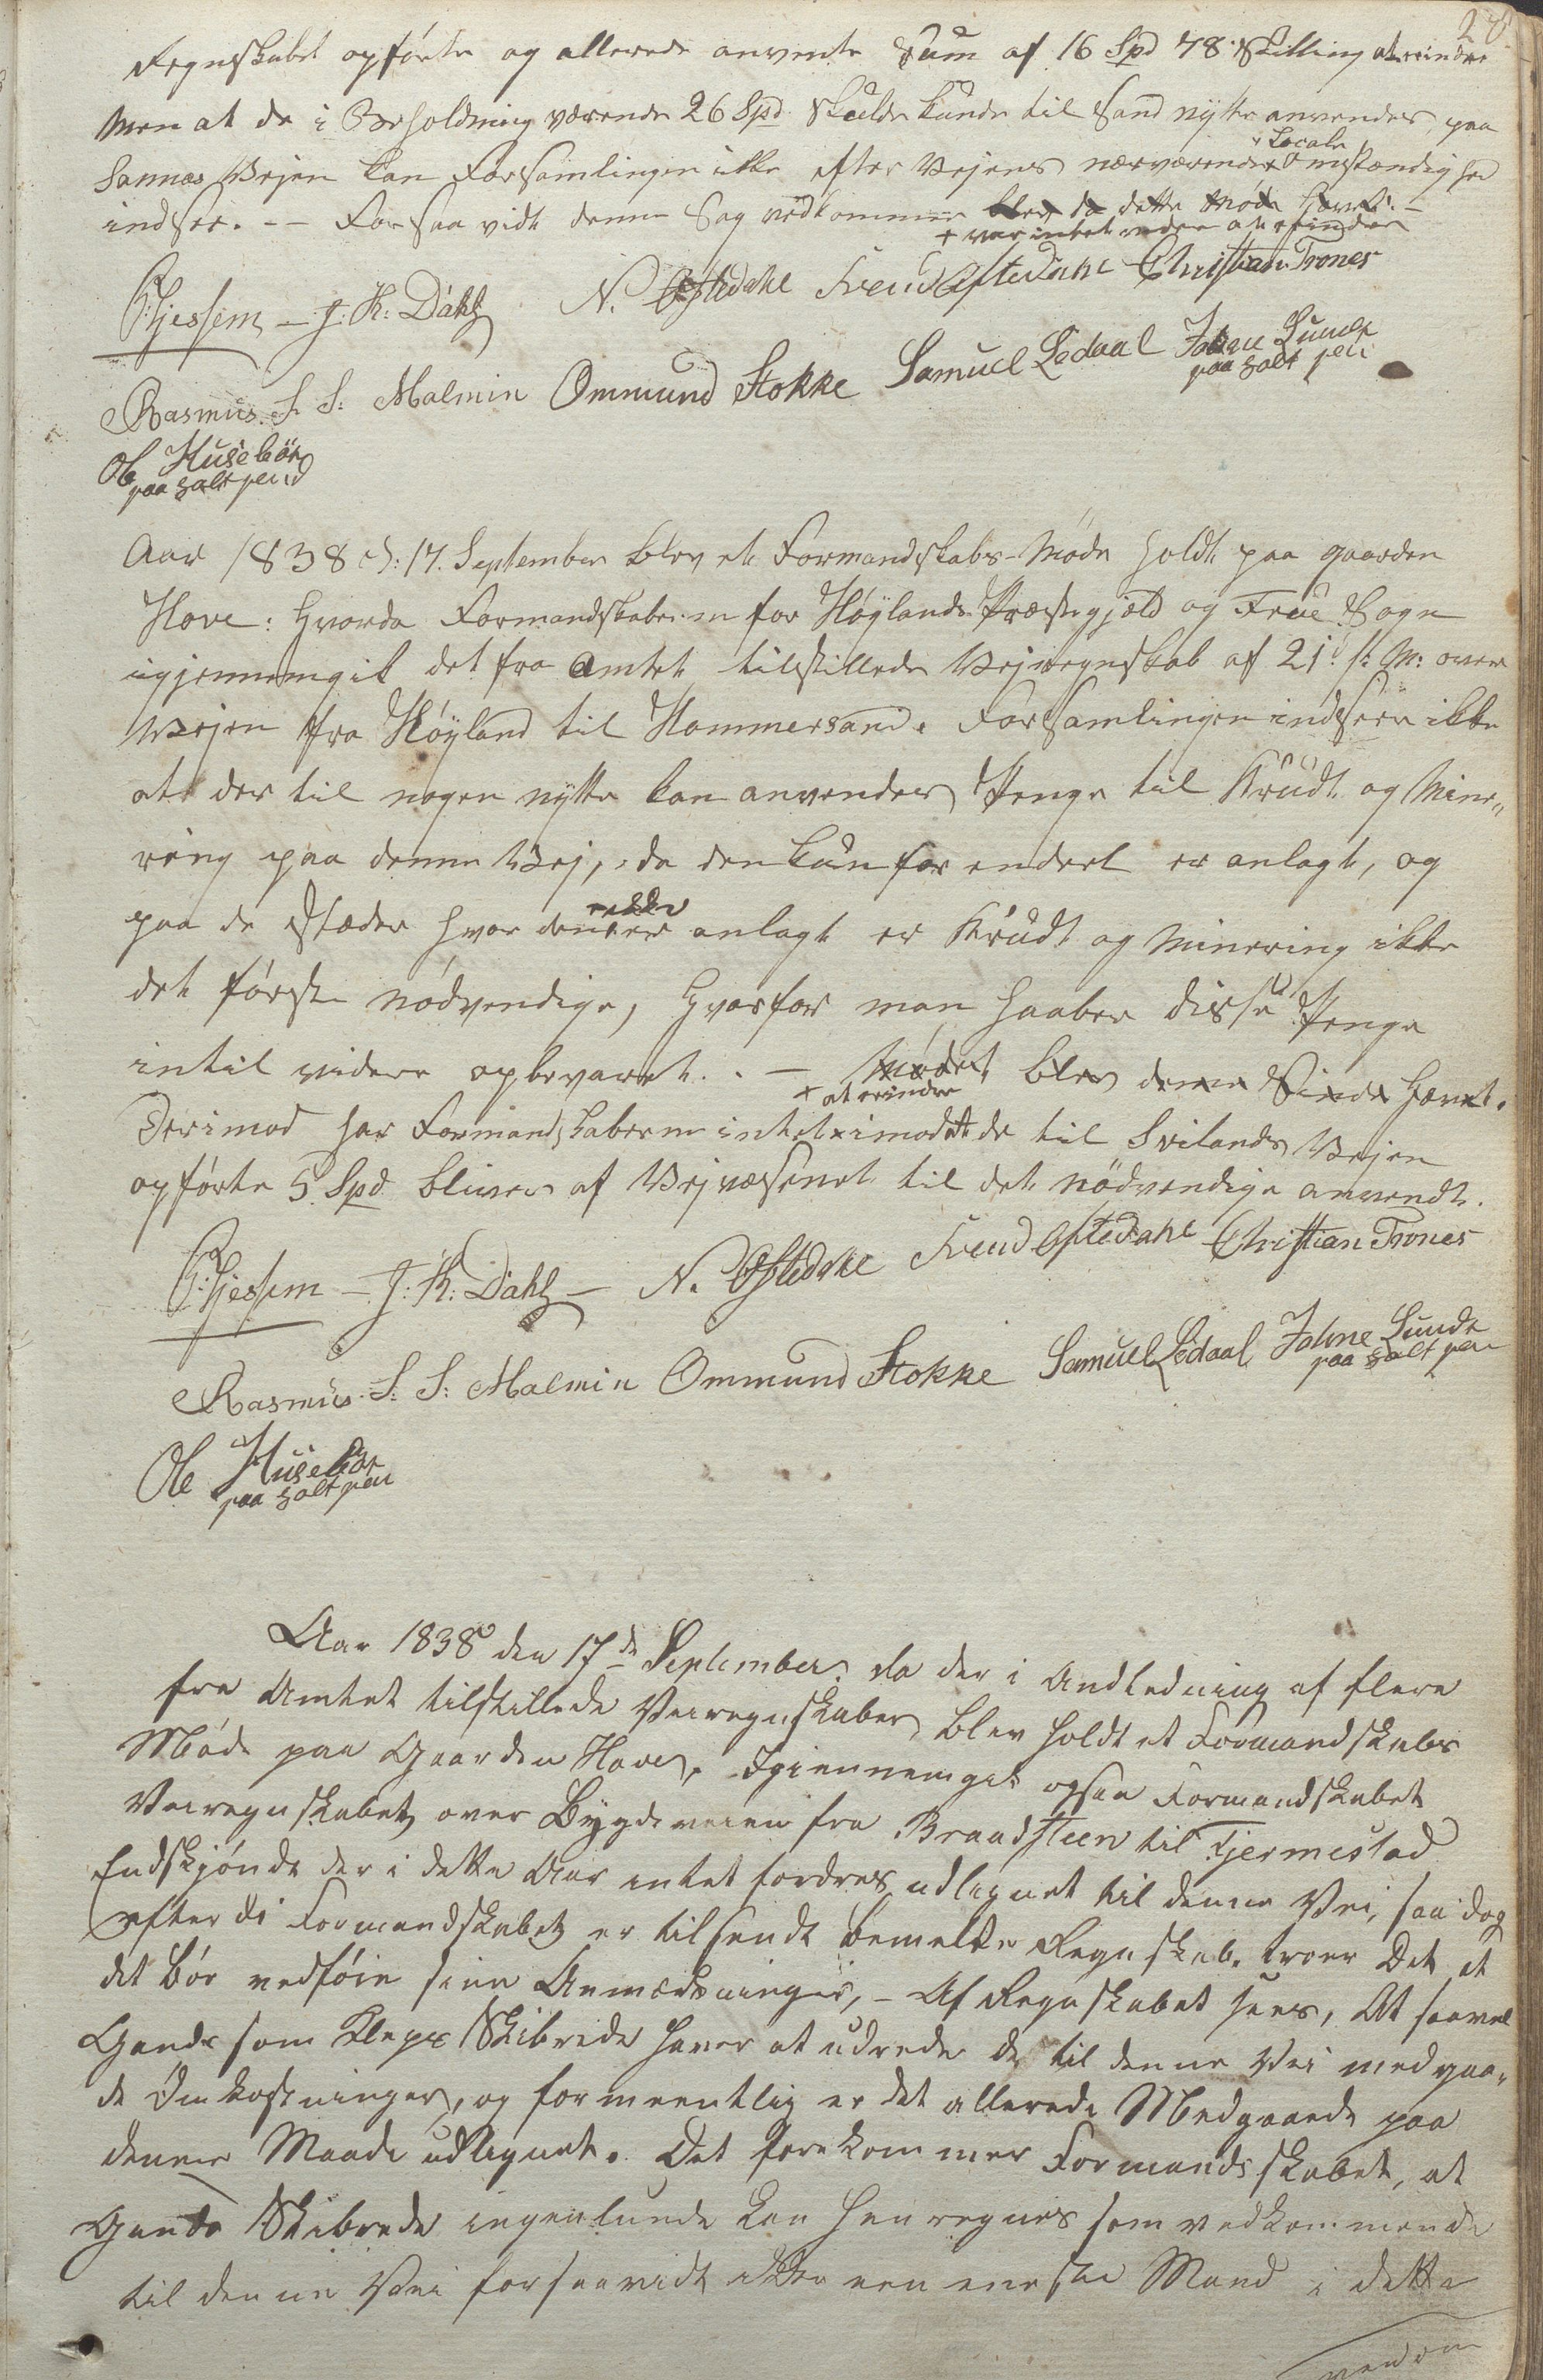 28
Regnskabet opførte og allerede anvente Sum af 16 Spd 78 Skilling at erindre
Men at de i Beholdning værende 26 Spd skulde kunde til Sand nytte anvendes paa
Sannæs Vejen kan Forsamlingen ikke efter Vejens nærværende Locale Omstændighed
indsee. -- For saa vidt denne Sag vedkommer blev da dette Møde hævet. -
+ var intet videre at erindre
G: Hjessem - J: K: Dahl N. Oftedahl Svend Oftedahl Christian Trones
Rasmus. S. S: Malmin Ommund Stokke Samuel Ledaal Johne Lunde
paa halt pen
Ole Husebøe
paa halt pend
Aar 1838 d: 17. September blev et Formandskabs-Møde holdt paa gaarden
Hove: Hvorda Formandskaberne for Høylands Præstegjeld og Frue Sogn
igjennemgik det fra Amtet tilstillede Vejregnskab af 21. f: M: over
Vejen fra Høyland til Hommersand. Forsamlingen indseer ikke
at der til nogen nytte kan anvendes Penge til Krudt og Mine„
ring paa denne Vej, da den kun for endeel er anlagt, og
paa de Stæder hvor den ikke er anlagt er Krudt og Minering ikke
det første nødvendige, Hvorfor man haaber disse Penge
intil videre opbevaret. . - Mødet blev denne Sinde hævet.
+ at erindre
Derimod har Formandskaberne intet + imod at de til Svilands Vejen
opførte 5 Spd bliver af Vejvæsenet til det nødvendige anvendt.
G: Hjessem - J: K: Dahl - N. Oftedahl Svend Oftedahl Christian Trones
Rasmus. S: S: Malmin Ommund Stokke Samuel Ledaal Johne Lunde
paa halt pen
Ole Husebøe
paa halt pen
Aar 1838 den 17de September, da der i Andledning af flere
fra Amtet tilstillede Veiregnskaber blev holdt et Formandskabs
Møde paa Gaarden Hove, Igiennemgik ogsaa Formandskabet
Veiregnskabet over Bygdeveien fra Braadsteen til Tjermestad
Endskjøndt der i dette Aar intet fordres udlignet til denne Vei, saa dog
efterdi Formandskabet er tilsendt bemeldte Regnskab. troer Det at
det bør vedføie sine Anmærkninger, - Af Regnskabet sees, At saavel
Gands som Kleps Skibrede haver at udrede de til denne Vei medgaa„
de Omkostninger, og formeentlig er det allerede Medgaaede paa
denne Maade udlignet. Det forekommer Formandsskabet, at
Gands Skibrede ingenlunde kan henregnes som vedkommende
til denne Vei forsaavidt ikke een eneste Mand i dette
vend om